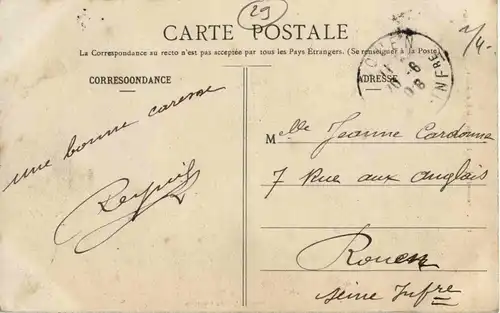 29
CARTE POSTALE
2/4-
La Correspondance au recto n'est pas acceptée par tous les Pays Etrangers. (Se renseigner à la Poste)
CORRESONDANCE
ADRESSE
INFRE
une bonne caresse
Melle Jeanne Cardonne
7 Rue aux anglais
Rouen
Seine Infre